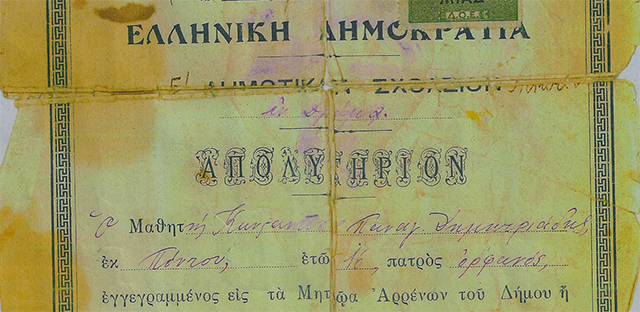 ΜΙΑΣ
Δ.Ο.Ε.
ΕΛΛΗΝΙΚΗ ΔΗΜΟΚΡΑΤΙΑ
Ε' ΔΗΜΟΤΙΚΟΝ ΣΧΟΛΕΙΟΝ
ἐν Δράμᾳ.
ΑΠΟΛΥΤΗΡΙΟΝ
Ὁ Μαθητὴς Παναγ. Δημητριάδης,
ἐκ Πόντου, ἐτῶν πατρὸς ὀρφανός,
ἐγγεγραμμένος εἰς τὰ Μητρῷα Ἀρρένων τοῦ Δήμου ἢ